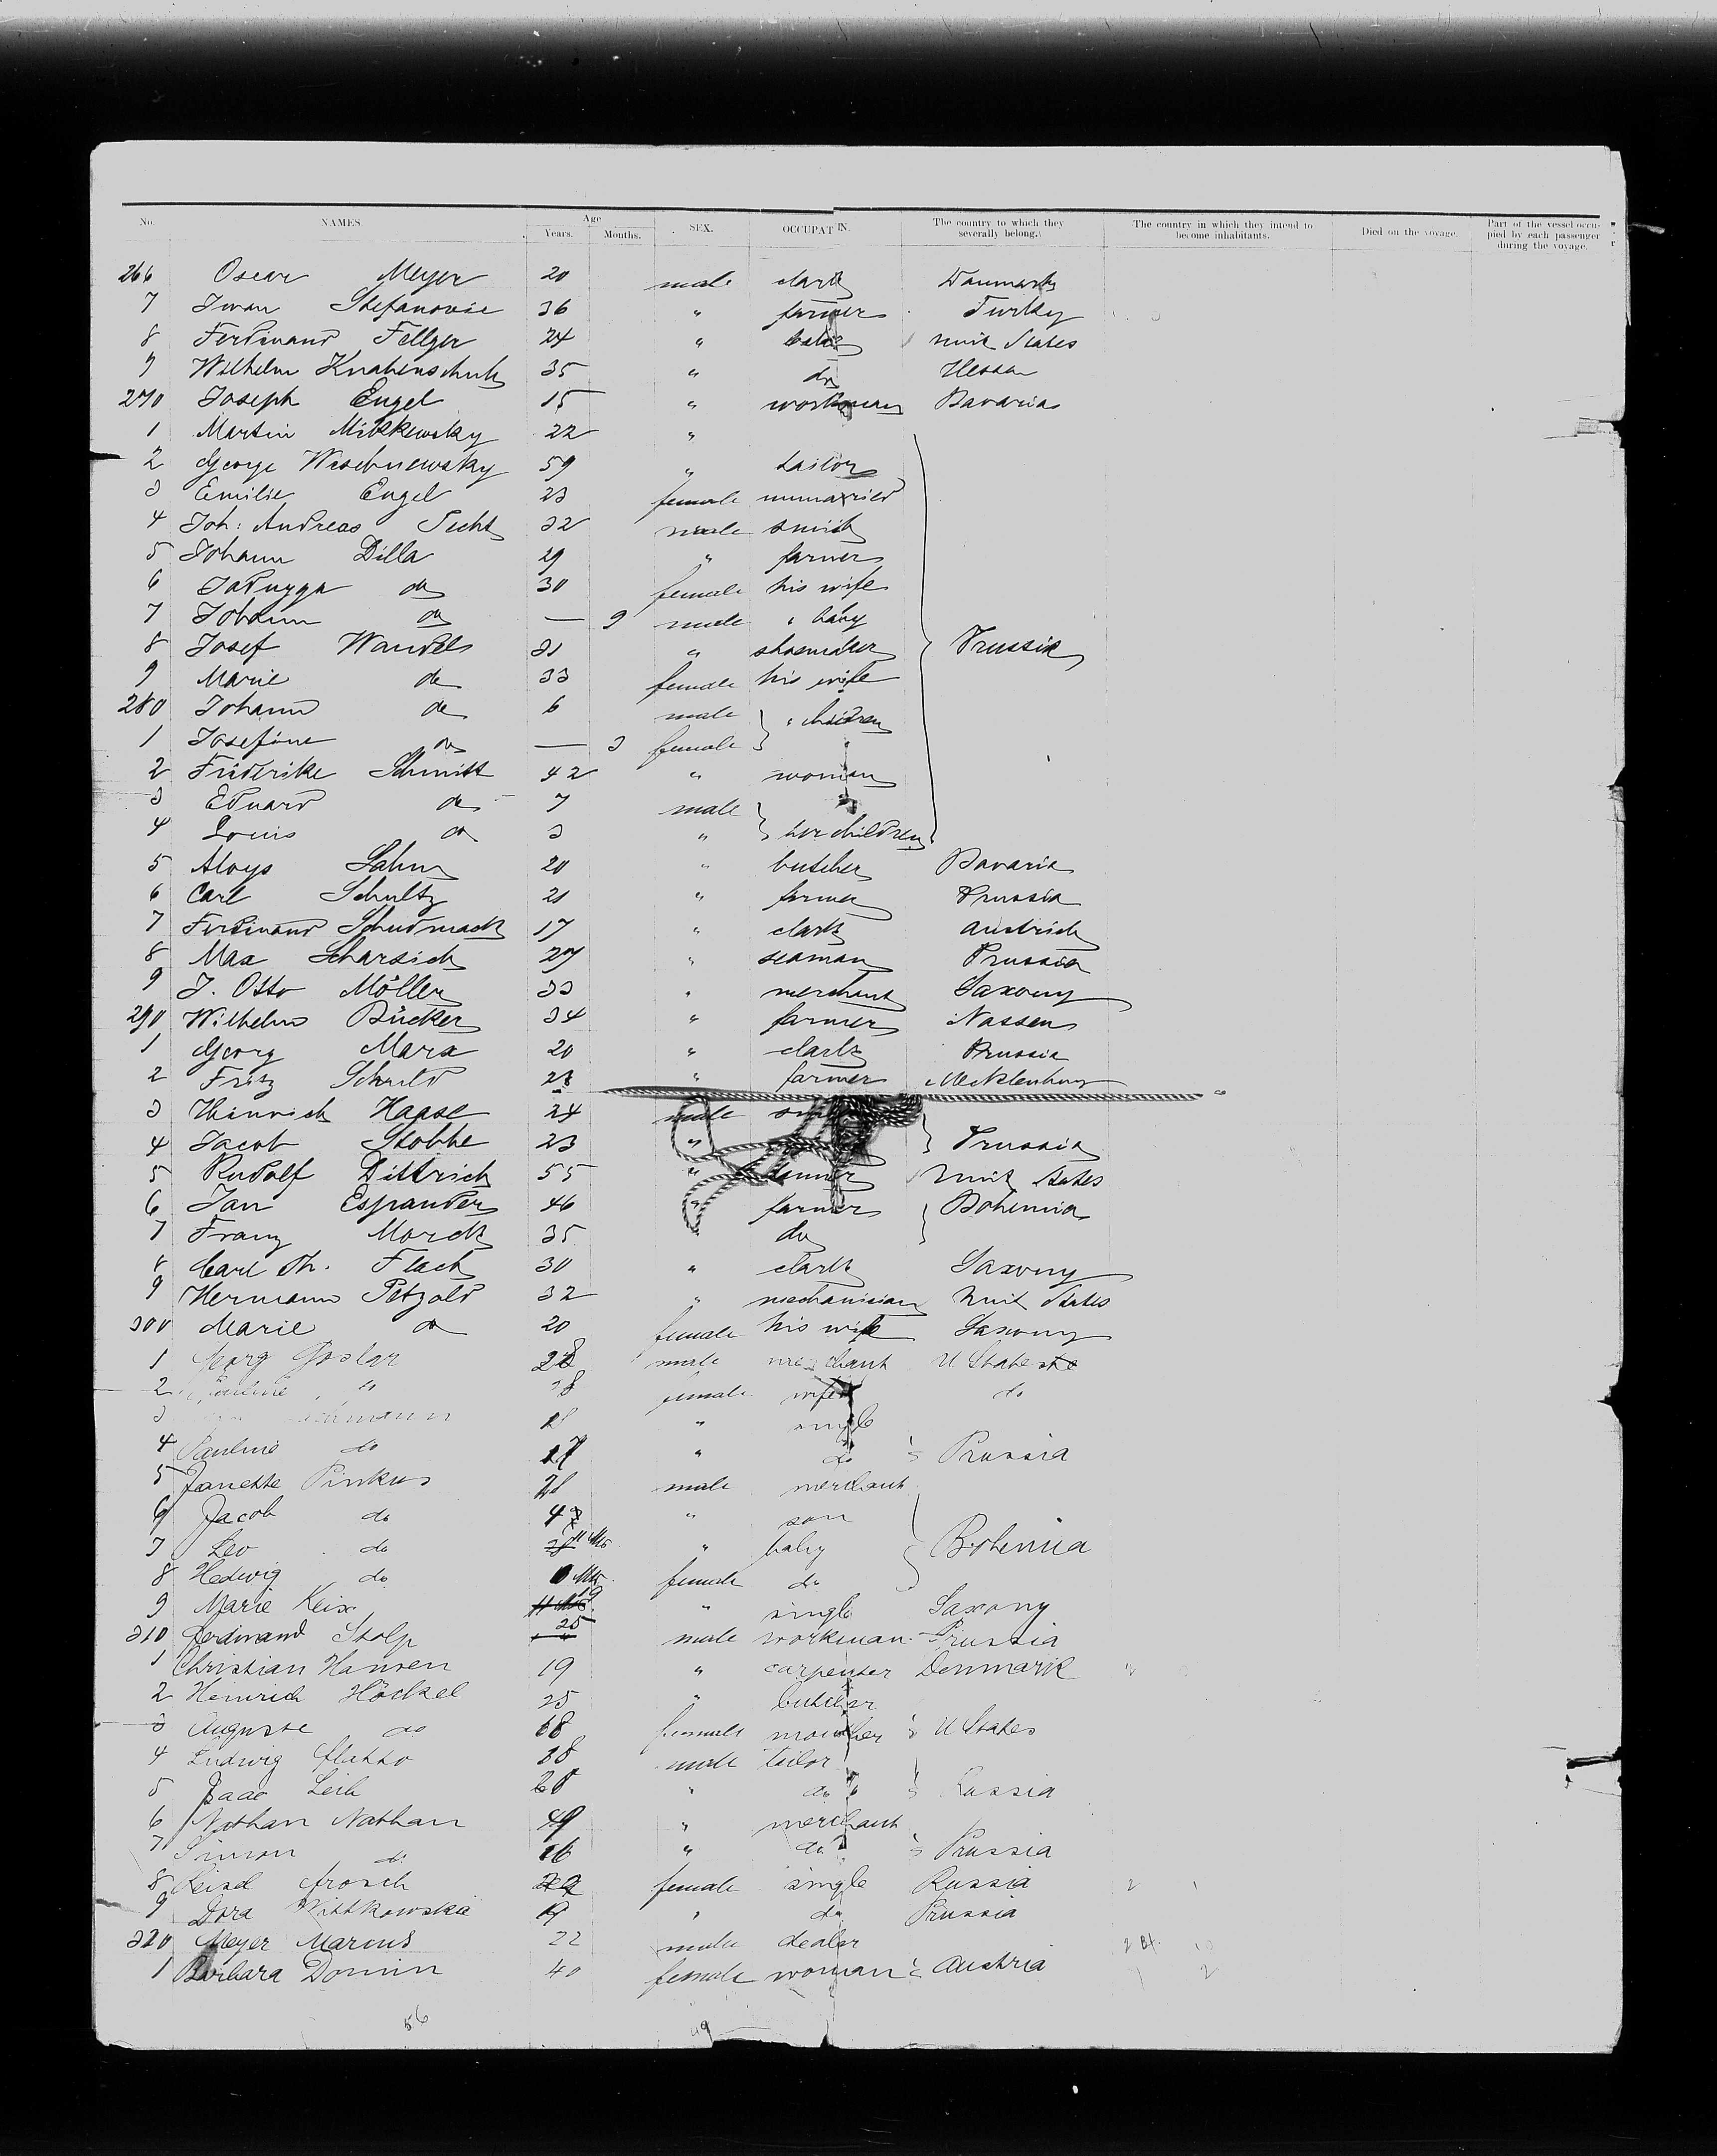 No. NAMES. Age Years. Months. SEX. OCCUPAT IN. The country to which they severally belong. The country in which they intend to become inhabitants. Died on the voyage. Part of the vessel occupied by each passenger during the voyage.
266 Oscar Meyer 20 male clark Danmark
7 Iwan Stefanovic 36 " farmer Turkey
8 Ferdinand Fellger 24 " unit States
9 Wilhelm Knabenschuh 35 " do Hessen
270 Joseph Engel 15 " workman Bavaria
1 Martin Mikkewsky 22 "
2 George Wischnewsky 59 " tailor
3 Emilie Engel 23 female unmaried
4 Joh: Andreas Techt 32 male smith
5 Johann Dilla 29 " farmer
6 Jadwyga do 30 female his wife
7 Johann do — 9 male " baby
8 Josef Wandel 31 " shoemaker Prussia
9 Marie do 33 female his wife
280 Johann do 6 male " children
1 Josefine do — 3 female
2 Friderike Schmitt 42 " woman
3 Eduard do 7 male
4 Louis do 3 " her children
5 Aloys Sahm 20 " butcher Bavaria
6 Carl Schultz 21 " farmer Prussia
7 Ferdinand Schudmack 17 " clark Austria
8 Max Scharsich 27 " seaman Prussia
9 J. Otto Möller 33 " merchant Saxony
290 Wilhelm Bücker 34 " farmer Nassau
1 Georg Marx 20 " clark Prussia
2 Fritz Schuld 28 " farmer Mecklenburg
3 Heinrich Haase 24 male
4 Jacob Stobbe 23 " Prussia
5 Rudolf Dittrich 55 " unit States
6 Jan Espander 46 " farmer Bohemia
7 Franz Morck 35 " do
8 Carl Th. Flach 30 " clark Saxony
9 Hermann Petzold 32 " mechanician unit States
300 Marie do 20 female his wife Saxony
1 Georg Goslar 28 male merchant U States
2 do 28 female wife do
3 " single
4 Pauline do 17 " do Prussia
5 Janette Pinkus 21 male merchant
6 Jacob do 4 " son
7 Leo do 11 Ms " baby Bohemia
8 Hedwig do female do
9 Marie Keix 19 " single Saxony
310 Ferdinand Stolp 25 male workman Prussia
1 Christian Hansen 19 " carpenter Denmark
2 Heinrich Höckel 25 " butcher
3 Auguste do 68 female mouther U States
4 Ludwig Flatto 18 male tailor
5 Isaac Leib 20 " do Russia
6 Nathan Nathan 49 " merchant
7 Simon do 16 " do Prussia
8 Leisel Arosch female single Russia
9 Dora Wittkowskie 19 " do Prussia
320 Meyer Marcus 22 male dealer
1 Barbara Domin 40 female woman Austria
56 49